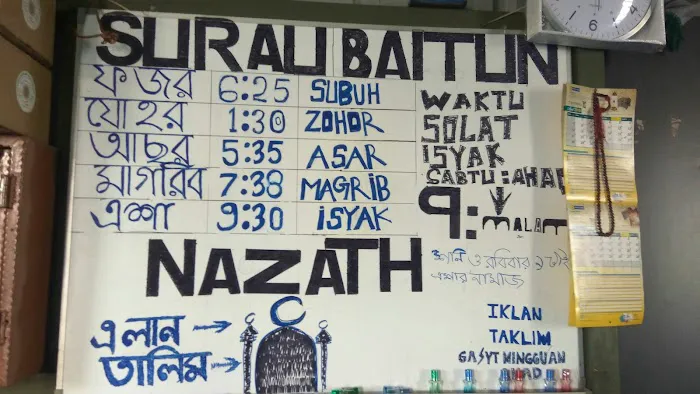 SURAU BAITUN
ফজর 6:25 SUBUH
যোহর 1:30 ZOHOR
আছর 5:35 ASAR
মাগরিব 7:38 MAGRIB
এশা 9:30 ISYAK
WAKTU
SOLAT
ISYAK
SABTU:AHAD
9: MALAM
NAZATH
শনি ও রবিবার ৯ টায়
এশার নামাজ
এলান
তালিম
IKLAN
TAKLIM
GASYT MINGGUAN
AHAD